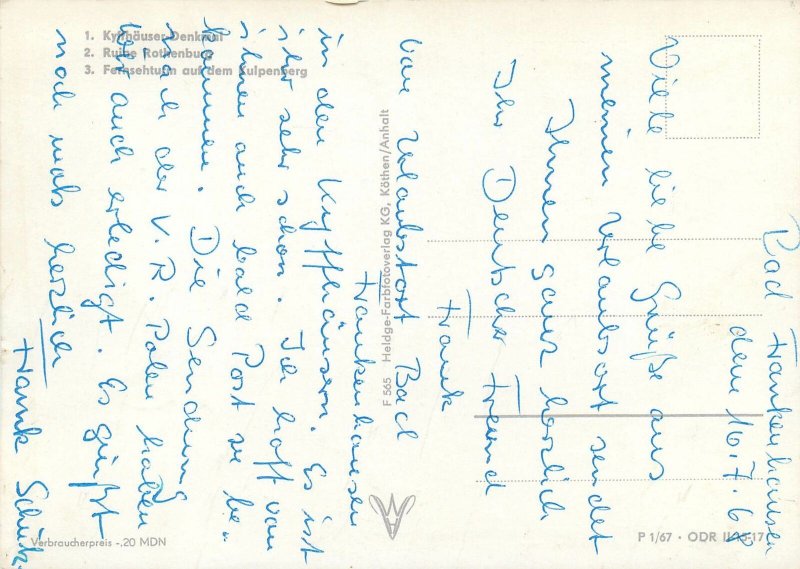 1. Kyffhäuser-Denkmal
2. Ruine Rothenburg
3. Fernsehturm auf dem Kulpenberg
Bad Frankenhausen
dem 16.7.68
Viele liebe Grüße aus
meinen Urlaubsort sendet
Ihnen ganz herzlich
Ihr Deutscher Freund
Frank
Vom Urlaubsort Bad
Frankenhausen
in den Kyffhäusern. Es ist
ihr sehr schön. Ich hoff von
ihnen auch bald Post zu be-
kommen. Die Sendung
nach der V.R. Polen haben
wir auch erledigt. Es grüßt
noch mals herzlich
Frank
F 565 Heldge-Farbfotoverlag KG, Köthen/Anhalt
Verbraucherpreis -,20 MDN
P 1/67 · ODR